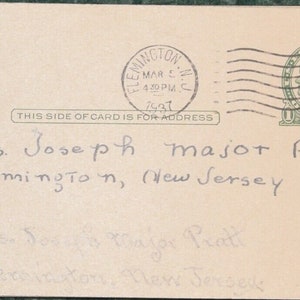 FLEMINGTON, N.J.
MAR 5
4 30 PM
1937
THIS SIDE OF CARD IS FOR ADDRESS
s. Joseph Major P
mington, New Jersey
s. Joseph Major Pratt
emington, New Jersey